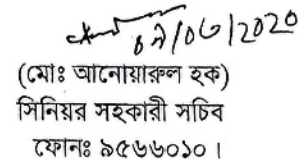 ০৭/০৬/2020
(মোঃ আনোয়ারুল হক)
সিনিয়র সহকারী সচিব
ফোনঃ ৯৫৬৬০১০।